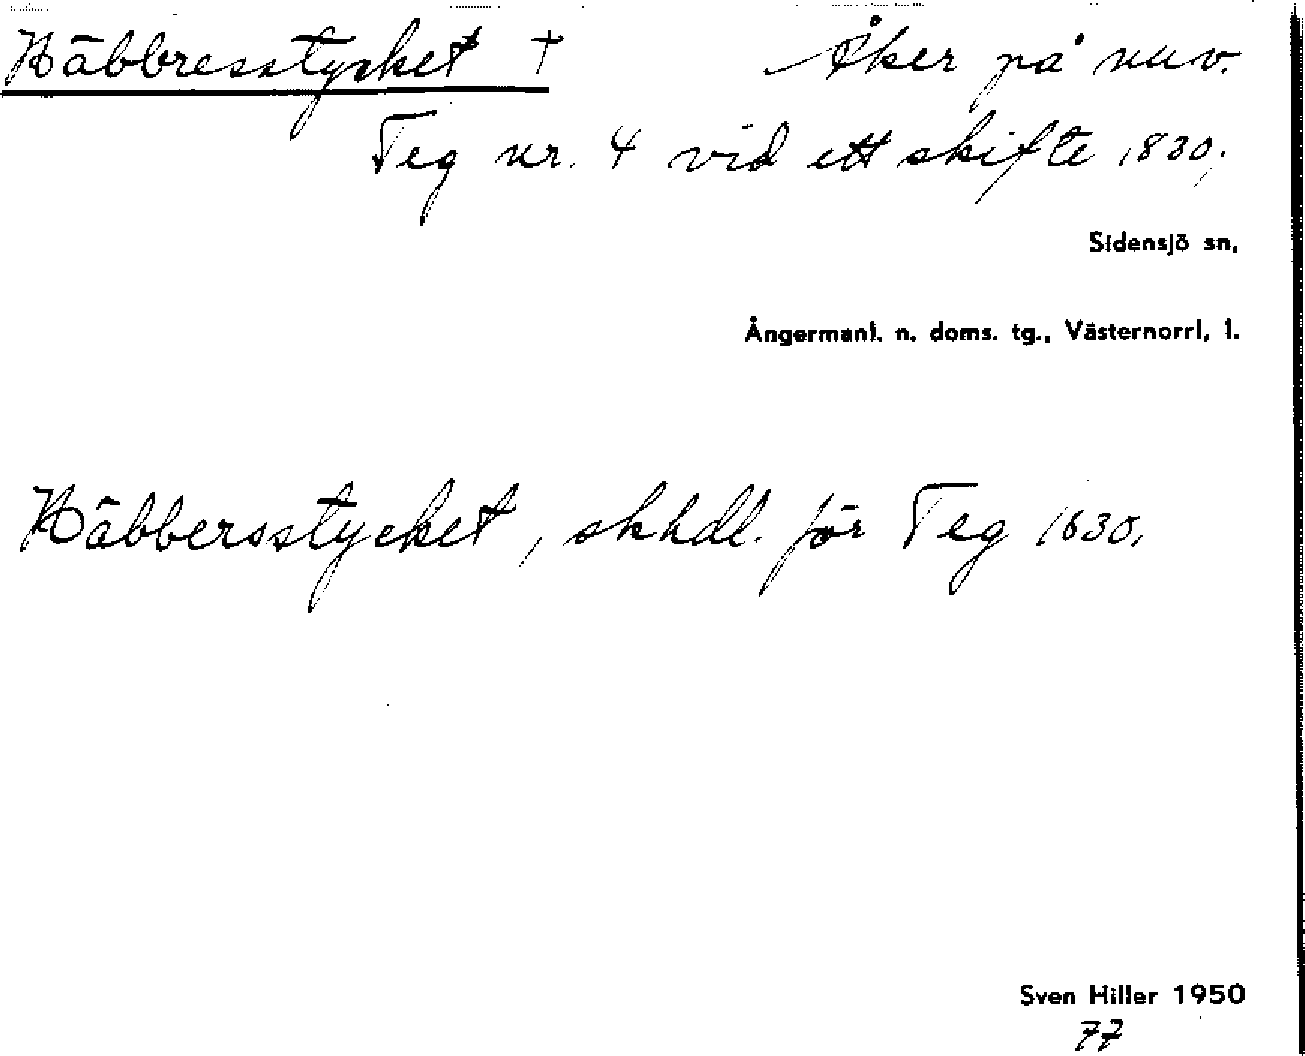 Häbbresstycket † Åker på nuv.
Teg nr. 4 vid ett skifte 1830.
Sidensjö sn,
Ångermanl. n. doms. tg., Västernorrl. l.
Häbbersstycket, skhdl. för Teg 1830.
Sven Hiller 1950
77